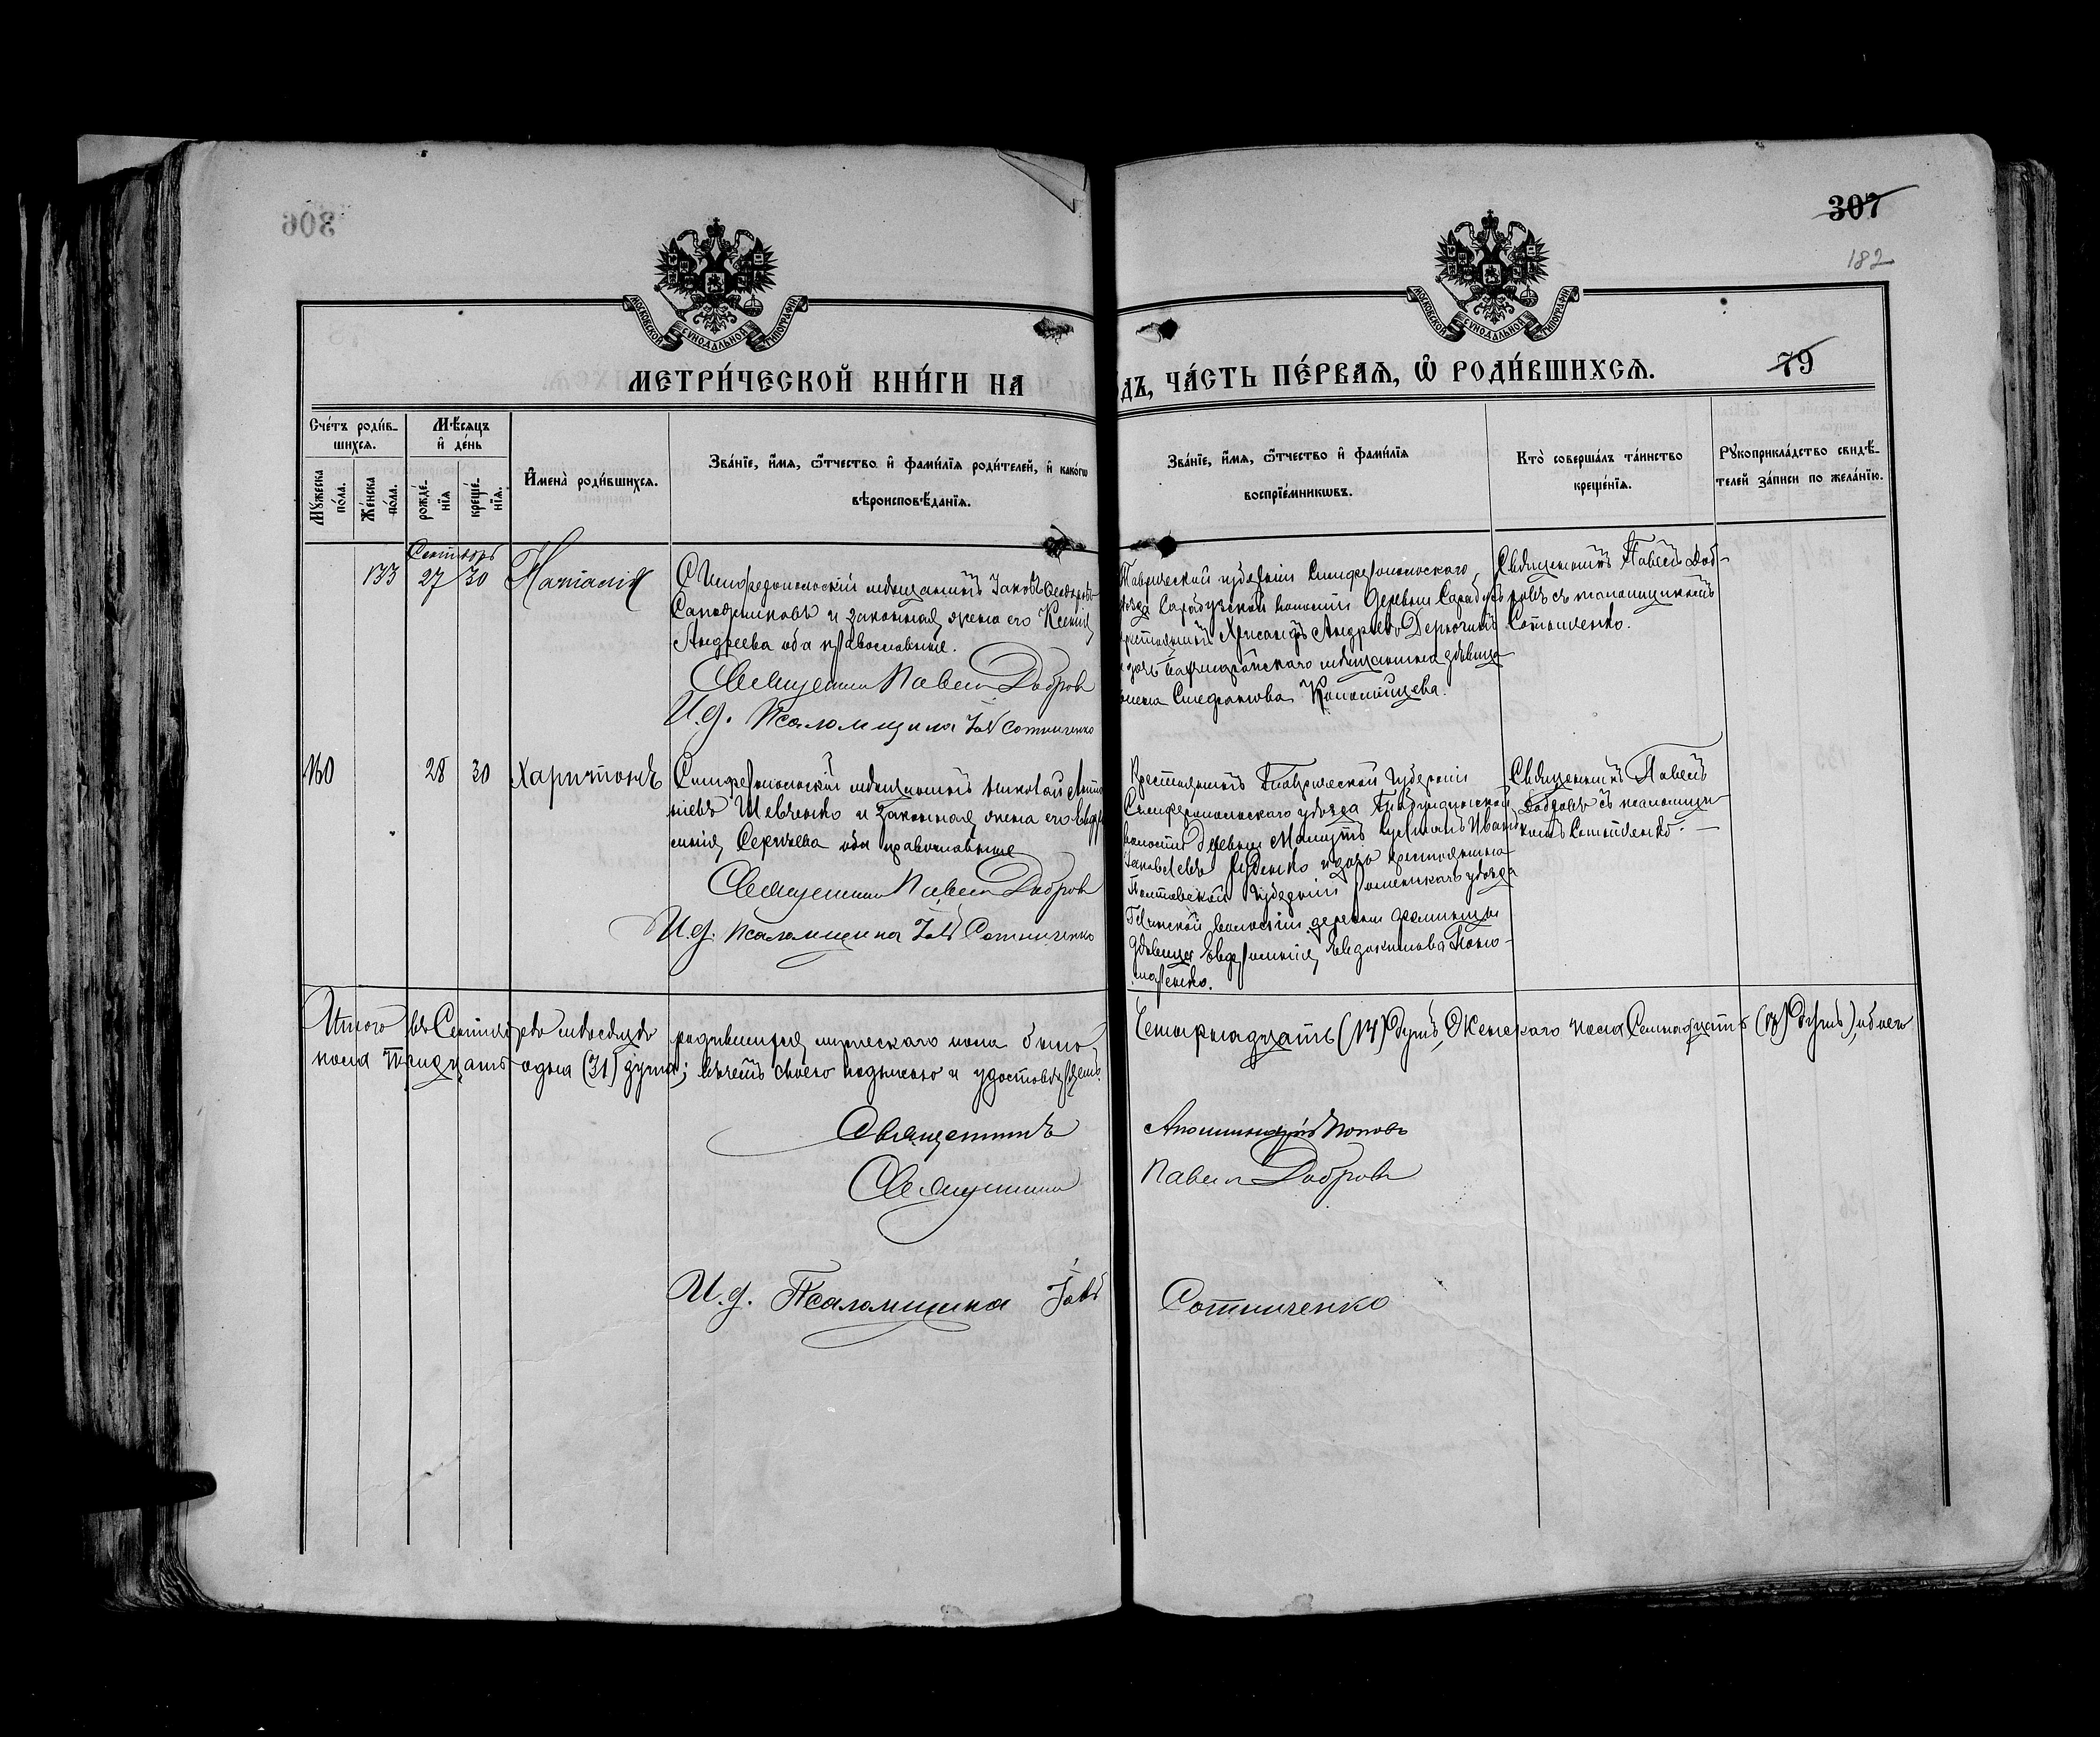 307
182
МОСКОВСКОЙ СѴНОДАЛЬНОЙ ТИПОГРАФІИ
МОСКОВСКОЙ СѴНОДАЛЬНОЙ ТИПОГРАФІИ
МЕТРИ́ЧЕСКОЙ КНИ́ГИ НА
ДЪ, ЧА́СТЬ ПЕ́РВАѦ, Ѡ҆ РОДИ́ВШИХСѦ.
79
Сче́тъ роди́в-
шихсѧ.
Мꙋжеска по́ла.
Же́нска по́ла.
Мѣ́сѧцъ
и҆ де́нь
рожде́-нїѧ
креще́-нїѧ.
И҆мена̀ роди́вшихсѧ.
Зва́нїе, и҆́мѧ, ѻ҆́тчество и҆ фами́лїѧ роди́телей, и҆ како́гѡ
вѣроисповѣ́данїѧ.
Зва́нїе, и҆́мѧ, ѻ҆́тчество и҆ фами́лїѧ
воспрїе́мникѡвъ.
Кто̀ соверша́лъ та́инство
креще́нїѧ.
Рꙋкоприкла́дство свидѣ́-
телей за́писи по жела́нїю.
Сентябрь
133 27 30 Наталія
Симферопольскій мѣщанинъ Іаковъ Ѳеодоровъ
Сапожниковъ и законная жена его Ксенія
Андреева оба православные.
Священникъ Павелъ Добровъ
И.д. Псаломщика Іовъ Сотниченко
Таврической губерніи Симферопольскаго
уѣзда Сарабузской волости деревни Сарабузъ
крестьянинъ Хрисанфъ Андреевъ
и дочь мѣщанина дѣвица
Стефанова
Священникъ Павелъ Доб-
ровъ съ псаломщикомъ
Сотниченко.
130 28 30 Харитонъ
Симферопольскій мѣщанинъ Николай
Шевченко и законная жена его
Сергѣева оба православные
Священникъ Павелъ Добровъ
И.д. Псаломщика Іовъ Сотниченко
Крестьянинъ Таврической губерніи
Симферопольскаго уѣзда
волости деревни Иванъ
Яковлевъ и дочь крестьянина
Полтавской губерніи Роменскаго уѣзда
волости деревни
дѣвица Евфросинія Евдокимова Поно-
маренко.
Священникъ Павелъ
Добровъ съ псаломщи-
комъ Сотниченко.
Итого въ Сентябрѣ мѣсяцѣ родившихся мужескаго пола было Четырнадцать (14) душъ, Женскаго пола Семнадцать (17) душъ, обоего
пола Тридцать одна (31) душа; въ чемъ своею подписью и удостовѣряемъ.
Священникъ Аполлинарій Поповъ
Священникъ Павелъ Добровъ
И.д. Псаломщика Іовъ Сотниченко